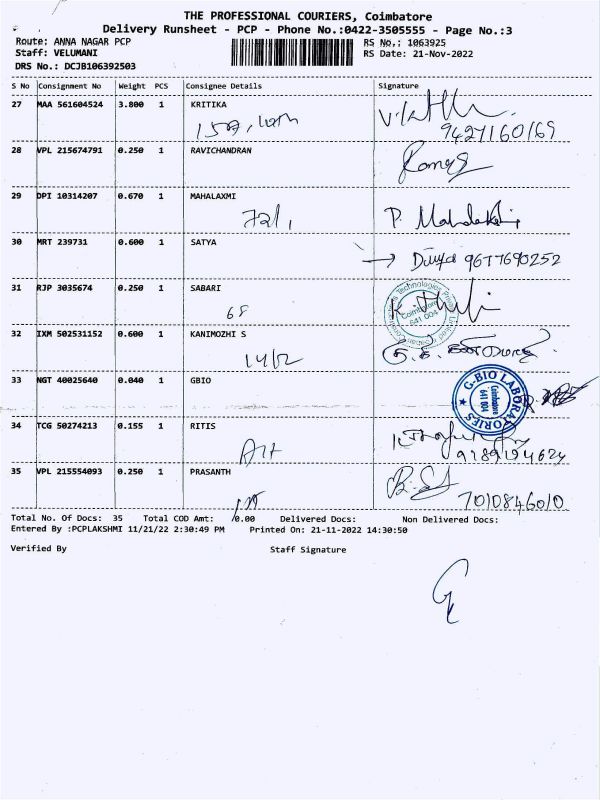 THE PROFESSIONAL COURIERS, Coimbatore
Delivery Runsheet - PCP - Phone No.:0422-3505555 - Page No.:3
Route: ANNA NAGAR PCP RS No.: 1063925
Staff: VELUMANI RS Date: 21-Nov-2022
DRS No.: DCJB106392503
S No Consignment No Weight PCS Consignee Details Signature
27 MAA 561604524 3.800 1 KRITIKA
9427160169
28 VPL 215674791 0.250 1 RAVICHANDRAN
29 DPI 10314207 0.670 1 MAHALAXMI
72/1 P. Mahalakshmi
30 MRT 239731 0.600 1 SATYA
Divya 9677690252
31 RJP 3035674 0.250 1 SABARI
68
Coimbatore
641 004
32 IXM 502531152 0.600 1 KANIMOZHI S
14/2
33 NGT 40025640 0.040 1 GBIO
G-BIO LABORATORIES
Coimbatore
641 004
34 TCG 50274213 0.155 1 RITIS
9789194624
35 VPL 215554093 0.250 1 PRASANTH
7010846010
Total No. Of Docs: 35 Total COD Amt: 0.00 Delivered Docs: Non Delivered Docs:
Entered By :PCPLAKSHMI 11/21/22 2:30:49 PM Printed On: 21-11-2022 14:30:50
Verified By Staff Signature